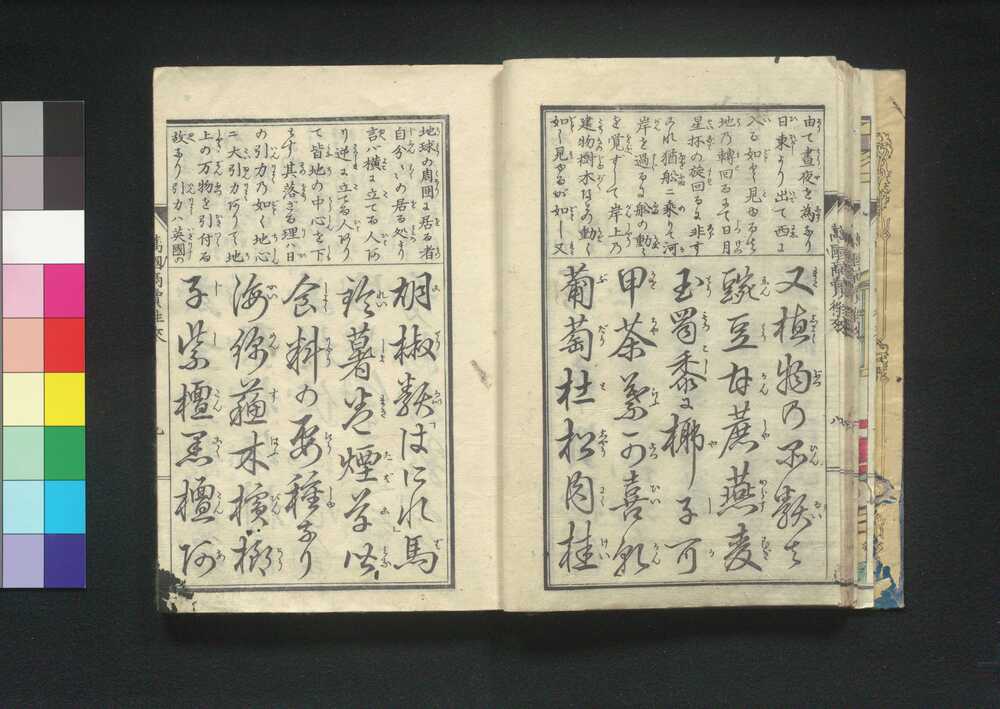 由て晝夜を為あり
日東より出て西に
入る如く見ゆるは
地乃轉回るまて日月
星抔の旋回るに非す
これ猶舩ニ乗りて河
岸を過るに舩の動く
を覚すして岸上乃
建物樹木はしり動く
如く見ゆるが如し又
又植物乃品類は
豌豆甘蔗燕麥
玉蜀黍に椰子可
甲茶葉の喜
葡萄杜松肉桂
地球の周囲に居る者
自分々々の居る処より
訳バ横に立てる人有
り逆に立てる人有り
て皆地の中心を下
とす其落ざる理ハ日
の引力乃如く地心
ニ大引力有りて地
上の万物を引付る
故あり引力ハ英國の
胡椒類はにれ馬
鈴薯巻煙草
食料の要種なり
海綿蘓木檳榔
子紫檀黒檀阿
萬國商賣往来